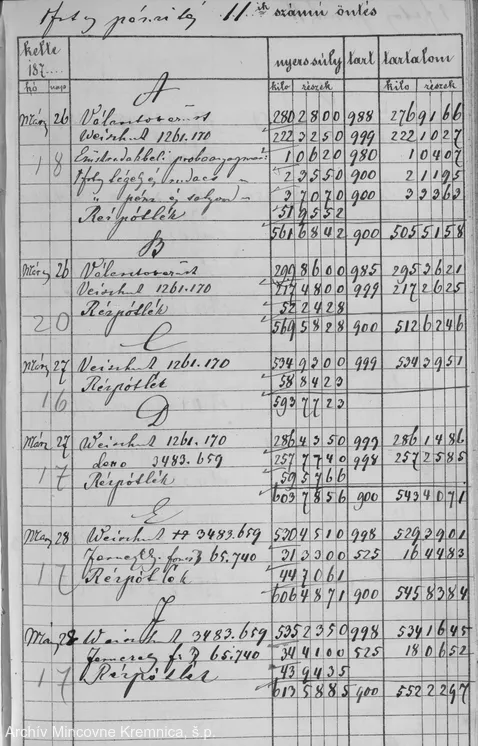 11ik számú öntés
kelte nyers súly tart tartalom
187
hó nap kiló részek kiló részek
A
Márz 26 Válantoverüst 280 2800 988 276 9166
Weischut 1261.170 222 3250 999 222 1027
18 1 0620 980 1 0407
2 3550 900 2 1195
" 3 7070 900 3 3363
Rézpótlék 51 9552
561 6842 900 505 5158
B
Márz 26 Válantoverüst 299 8600 985 295 3621
Weischut 1261.170 217 4800 999 217 2625
Rézpótlék 52 2428
20 569 5828 900 512 6246
C
Márz 27 Weischut 1261.170 534 9300 999 534 3951
Rézpótlék 58 8423
16 593 7723
D
Márz 27 Weischut 1261.170 286 4350 999 286 1486
17 detto 3483.659 257 7740 998 257 2585
Rézpótlék 59 5766
603 7856 900 543 4071
E
Márz 28 Weischut 3483.659 530 4510 998 529 3901
65.740 31 3300 525 16 4483
17 Rézpótlék 44 7061
606 4871 900 545 8384
F
Márz 28 Weischut 3483.659 535 2350 998 534 1645
65.740 34 4100 525 18 0652
17 Rézpótlék 43 9435
613 5885 900 552 2297
Archív Mincovne Kremnica, š.p.